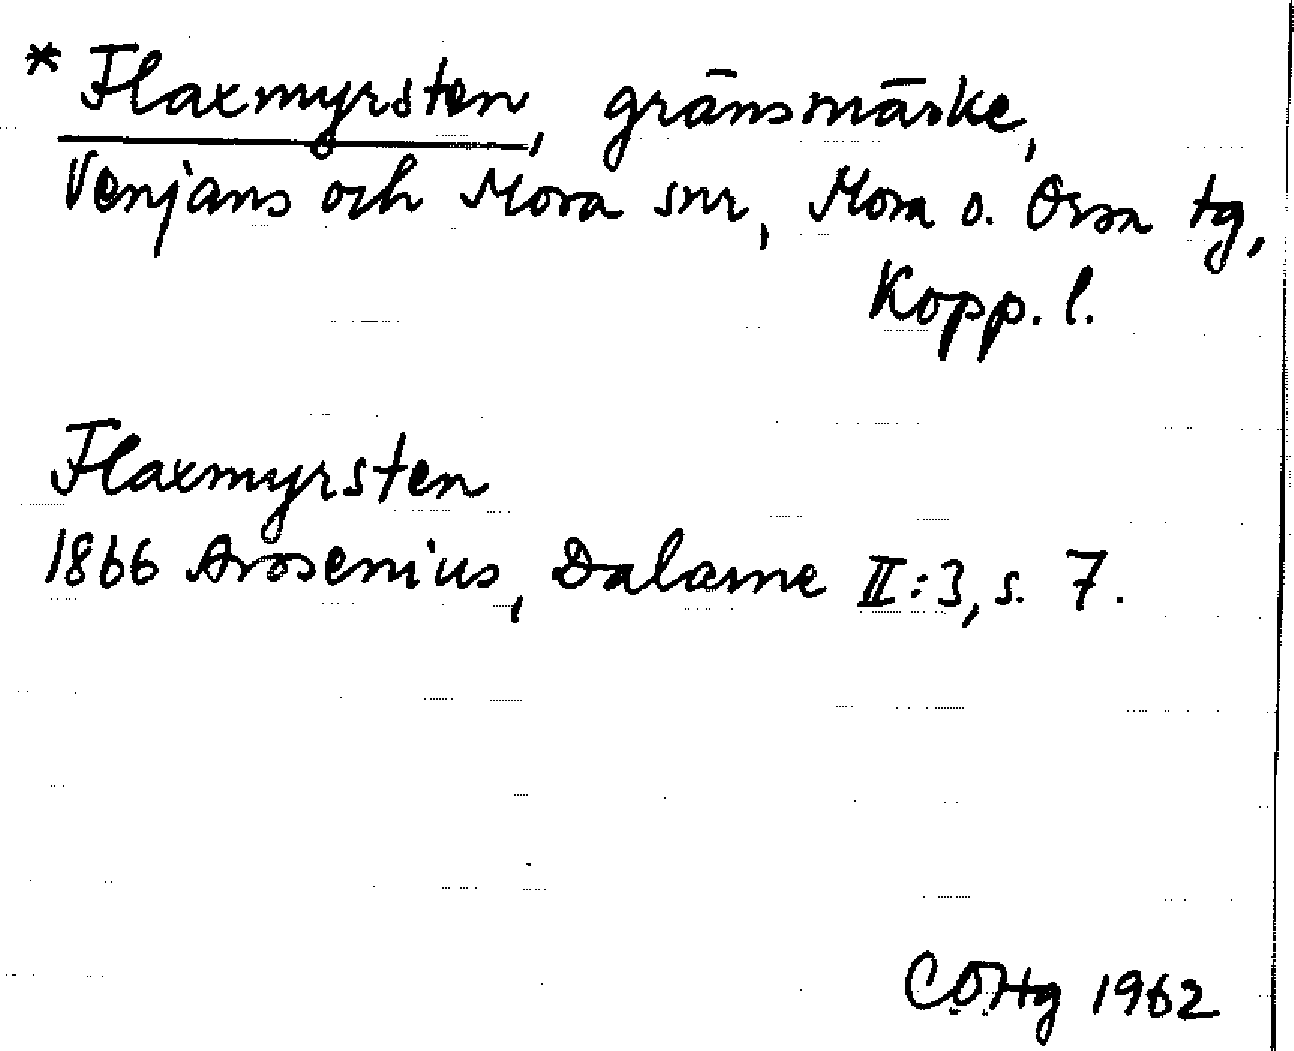 * Flaxmyrsten, gränsmärke,
Venjans och Mora snr, Mora o. Orsa tg,
Kopp. l.
Flaxmyrsten
1866 Arosenius, Dalarne II:3, s. 7.
COHg 1962